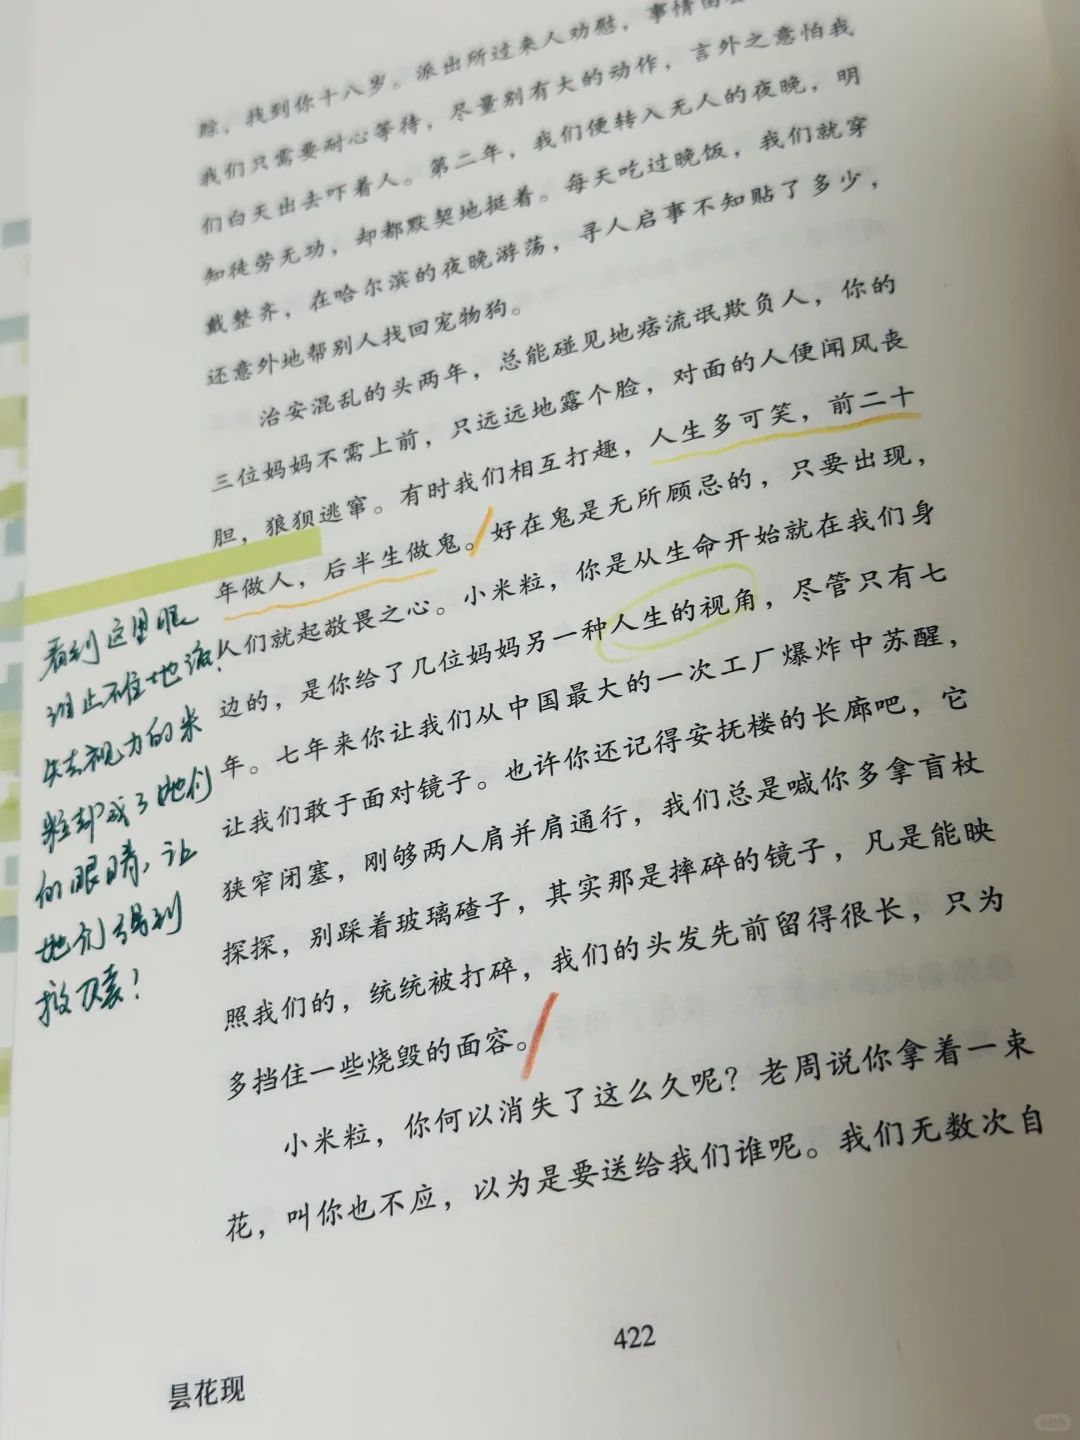 踪，找到你十八岁。派出所过来人劝慰，事情
我们只需要耐心等待，尽量别有大的动作，言外之意怕我
们白天出去吓着人。第二年，我们便转入无人的夜晚，明
知徒劳无功，却都默契地挺着。每天吃过晚饭，我们就穿
戴整齐，在哈尔滨的夜晚游荡，寻人启事不知贴了多少，
还意外地帮别人找回宠物狗。
治安混乱的头两年，总能碰见地痞流氓欺负人，你的
三位妈妈不需上前，只远远地露个脸，对面的人便闻风丧
胆，狼狈逃窜。有时我们相互打趣，人生多可笑，前二十
年做人，后半生做鬼。好在鬼是无所顾忌的，只要出现，
人们就起敬畏之心。小米粒，你是从生命开始就在我们身
边的，是你给了几位妈妈另一种人生的视角，尽管只有七
年。七年来你让我们从中国最大的一次工厂爆炸中苏醒，
让我们敢于面对镜子。也许你还记得安抚楼的长廊吧，它
狭窄闭塞，刚够两人肩并肩通行，我们总是喊你多拿盲杖
探探，别踩着玻璃碴子，其实那是摔碎的镜子，凡是能映
照我们的，统统被打碎，我们的头发先前留得很长，只为
多挡住一些烧毁的面容。
小米粒，你何以消失了这么久呢？老周说你拿着一束
花，叫你也不应，以为是要送给我们谁呢。我们无数次自
看到这里眼
泪止不住地流！
失去视力的米
粒却成了她们
的眼睛，让
她们得到
救赎！
422
昙花现